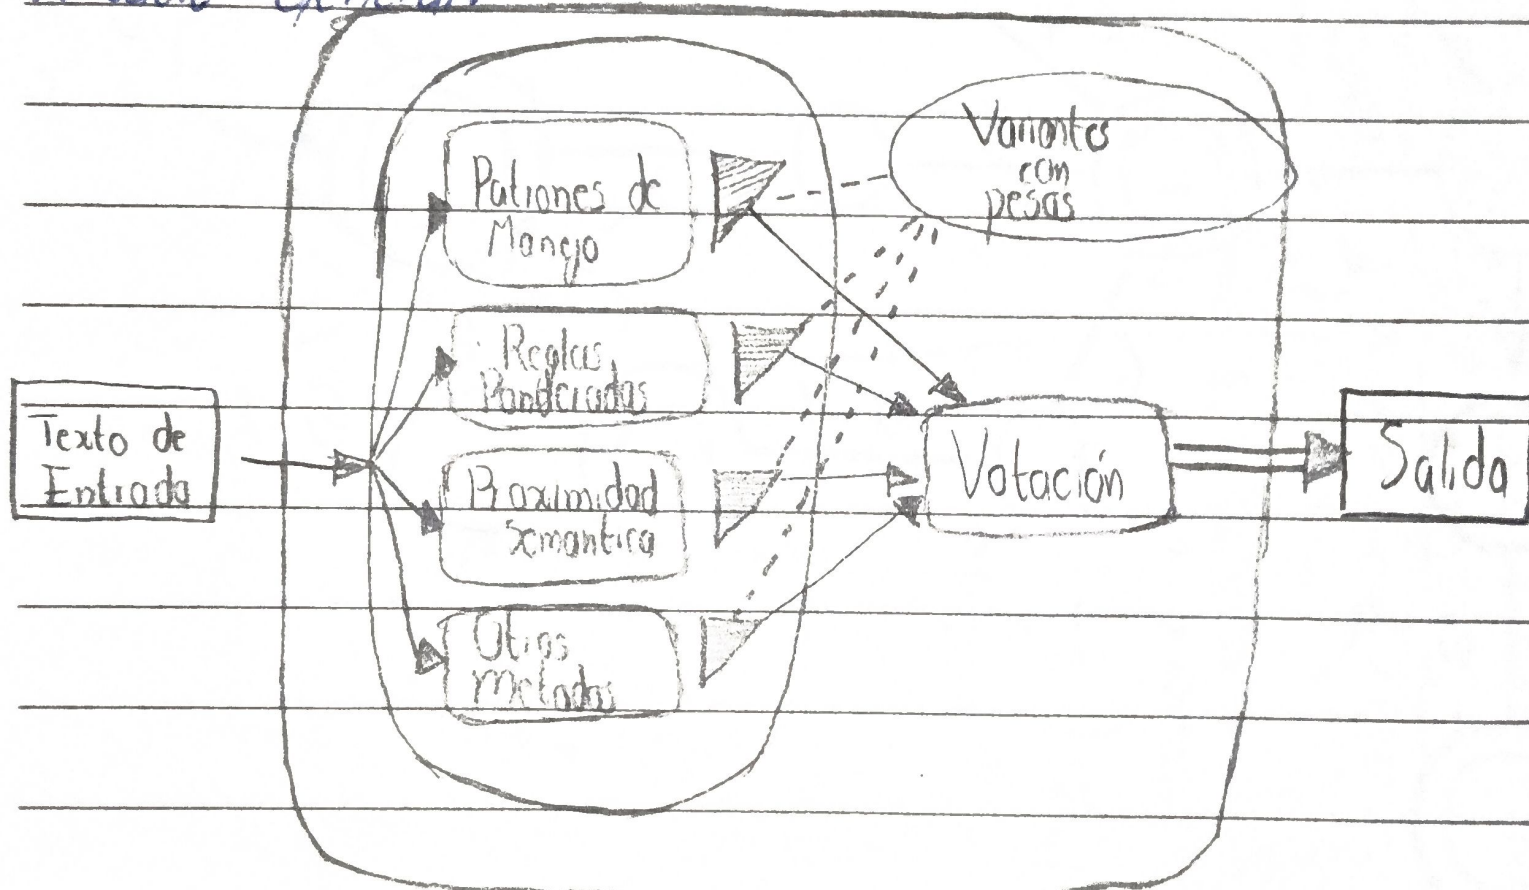 Texto de
Entrada
Patrones de
Manejo
Reglas
Ponderadas
Proximidad
Semantica
Otros
Metodos
Variantes
con
pesas
Votación
Salida